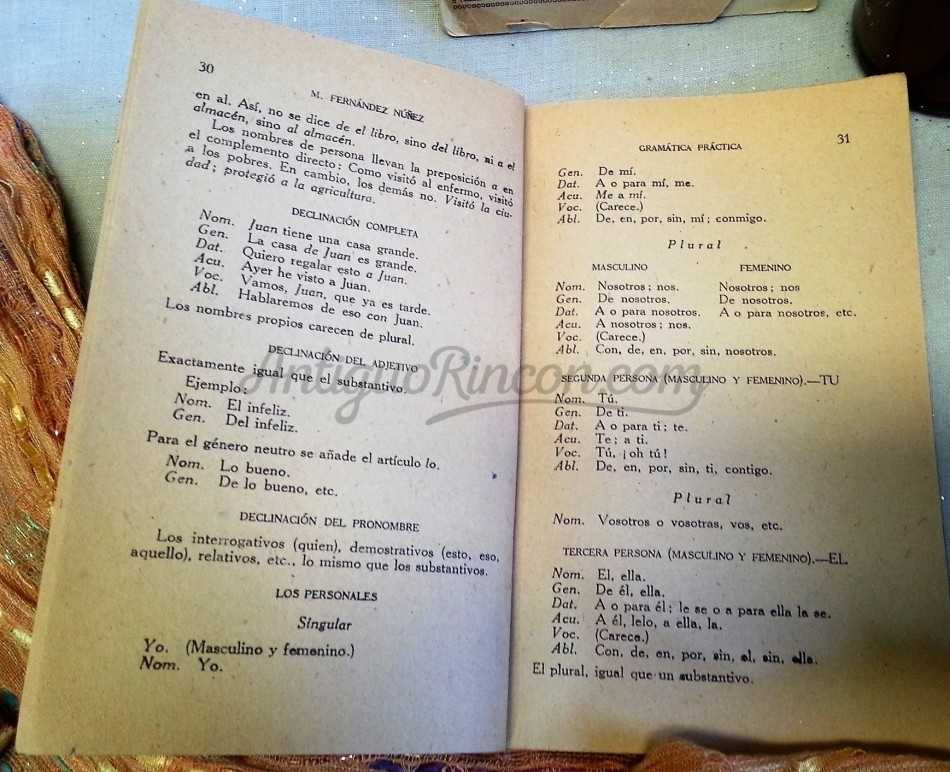 30
M. FERNÁNDEZ NÚÑEZ
en al. Así, no se dice de el libro, sino del libro, ni a el
almacén, sino al almacén.
Los nombres de persona llevan la preposición a en
el complemento directo: Como visitó al enfermo, visitó
a los pobres. En cambio, los demás no. Visitó la ciu-
dad; protegió a la agricultura.
DECLINACIÓN COMPLETA
Nom. Juan tiene una casa grande.
Gen. La casa de Juan es grande.
Dat. Quiero regalar esto a Juan.
Acu. Ayer he visto a Juan.
Voc. Vamos, Juan, que ya es tarde.
Abl. Hablaremos de eso con Juan.
Los nombres propios carecen de plural.
DECLINACIÓN DEL ADJETIVO
Exactamente igual que el substantivo.
Ejemplo:
Nom. El infeliz.
Gen. Del infeliz.
Para el género neutro se añade el artículo lo.
Nom. Lo bueno.
Gen. De lo bueno, etc.
DECLINACIÓN DEL PRONOMBRE
Los interrogativos (quien), demostrativos (esto, eso,
aquello), relativos, etc., lo mismo que los substantivos.
LOS PERSONALES
Singular
Yo. (Masculino y femenino.)
Nom. Yo.
GRAMÁTICA PRÁCTICA
31
Gen. De mí.
Dat. A o para mí, me.
Acu. Me a mí.
Voc. (Carece.)
Abl. De, en, por, sin, mí; conmigo.
Plural
MASCULINO FEMENINO
Nom. Nosotros; nos. Nosotros; nos
Gen. De nosotros. De nosotros.
Dat. A o para nosotros. A o para nosotros, etc.
Acu. A nosotros; nos.
Voc. (Carece.)
Abl. Con, de, en, por, sin, nosotros.
SEGUNDA PERSONA (MASCULINO Y FEMENINO).—TU
Nom. Tú.
Gen. De ti.
Dat. A o para ti; te.
Acu. Te; a ti.
Voc. Tú, ¡oh tú!
Abl. De, en, por, sin, ti, contigo.
Plural
Nom. Vosotros o vosotras, vos, etc.
TERCERA PERSONA (MASCULINO Y FEMENINO).—EL
Nom. El, ella.
Gen. De él, ella.
Dat. A o para él; le se o a para ella la se.
Acu. A él, lelo, a ella, la.
Voc. (Carece.)
Abl. Con, de, en, por, sin, el, sin, ella.
El plural, igual que un substantivo.
AntiguoRincon.com